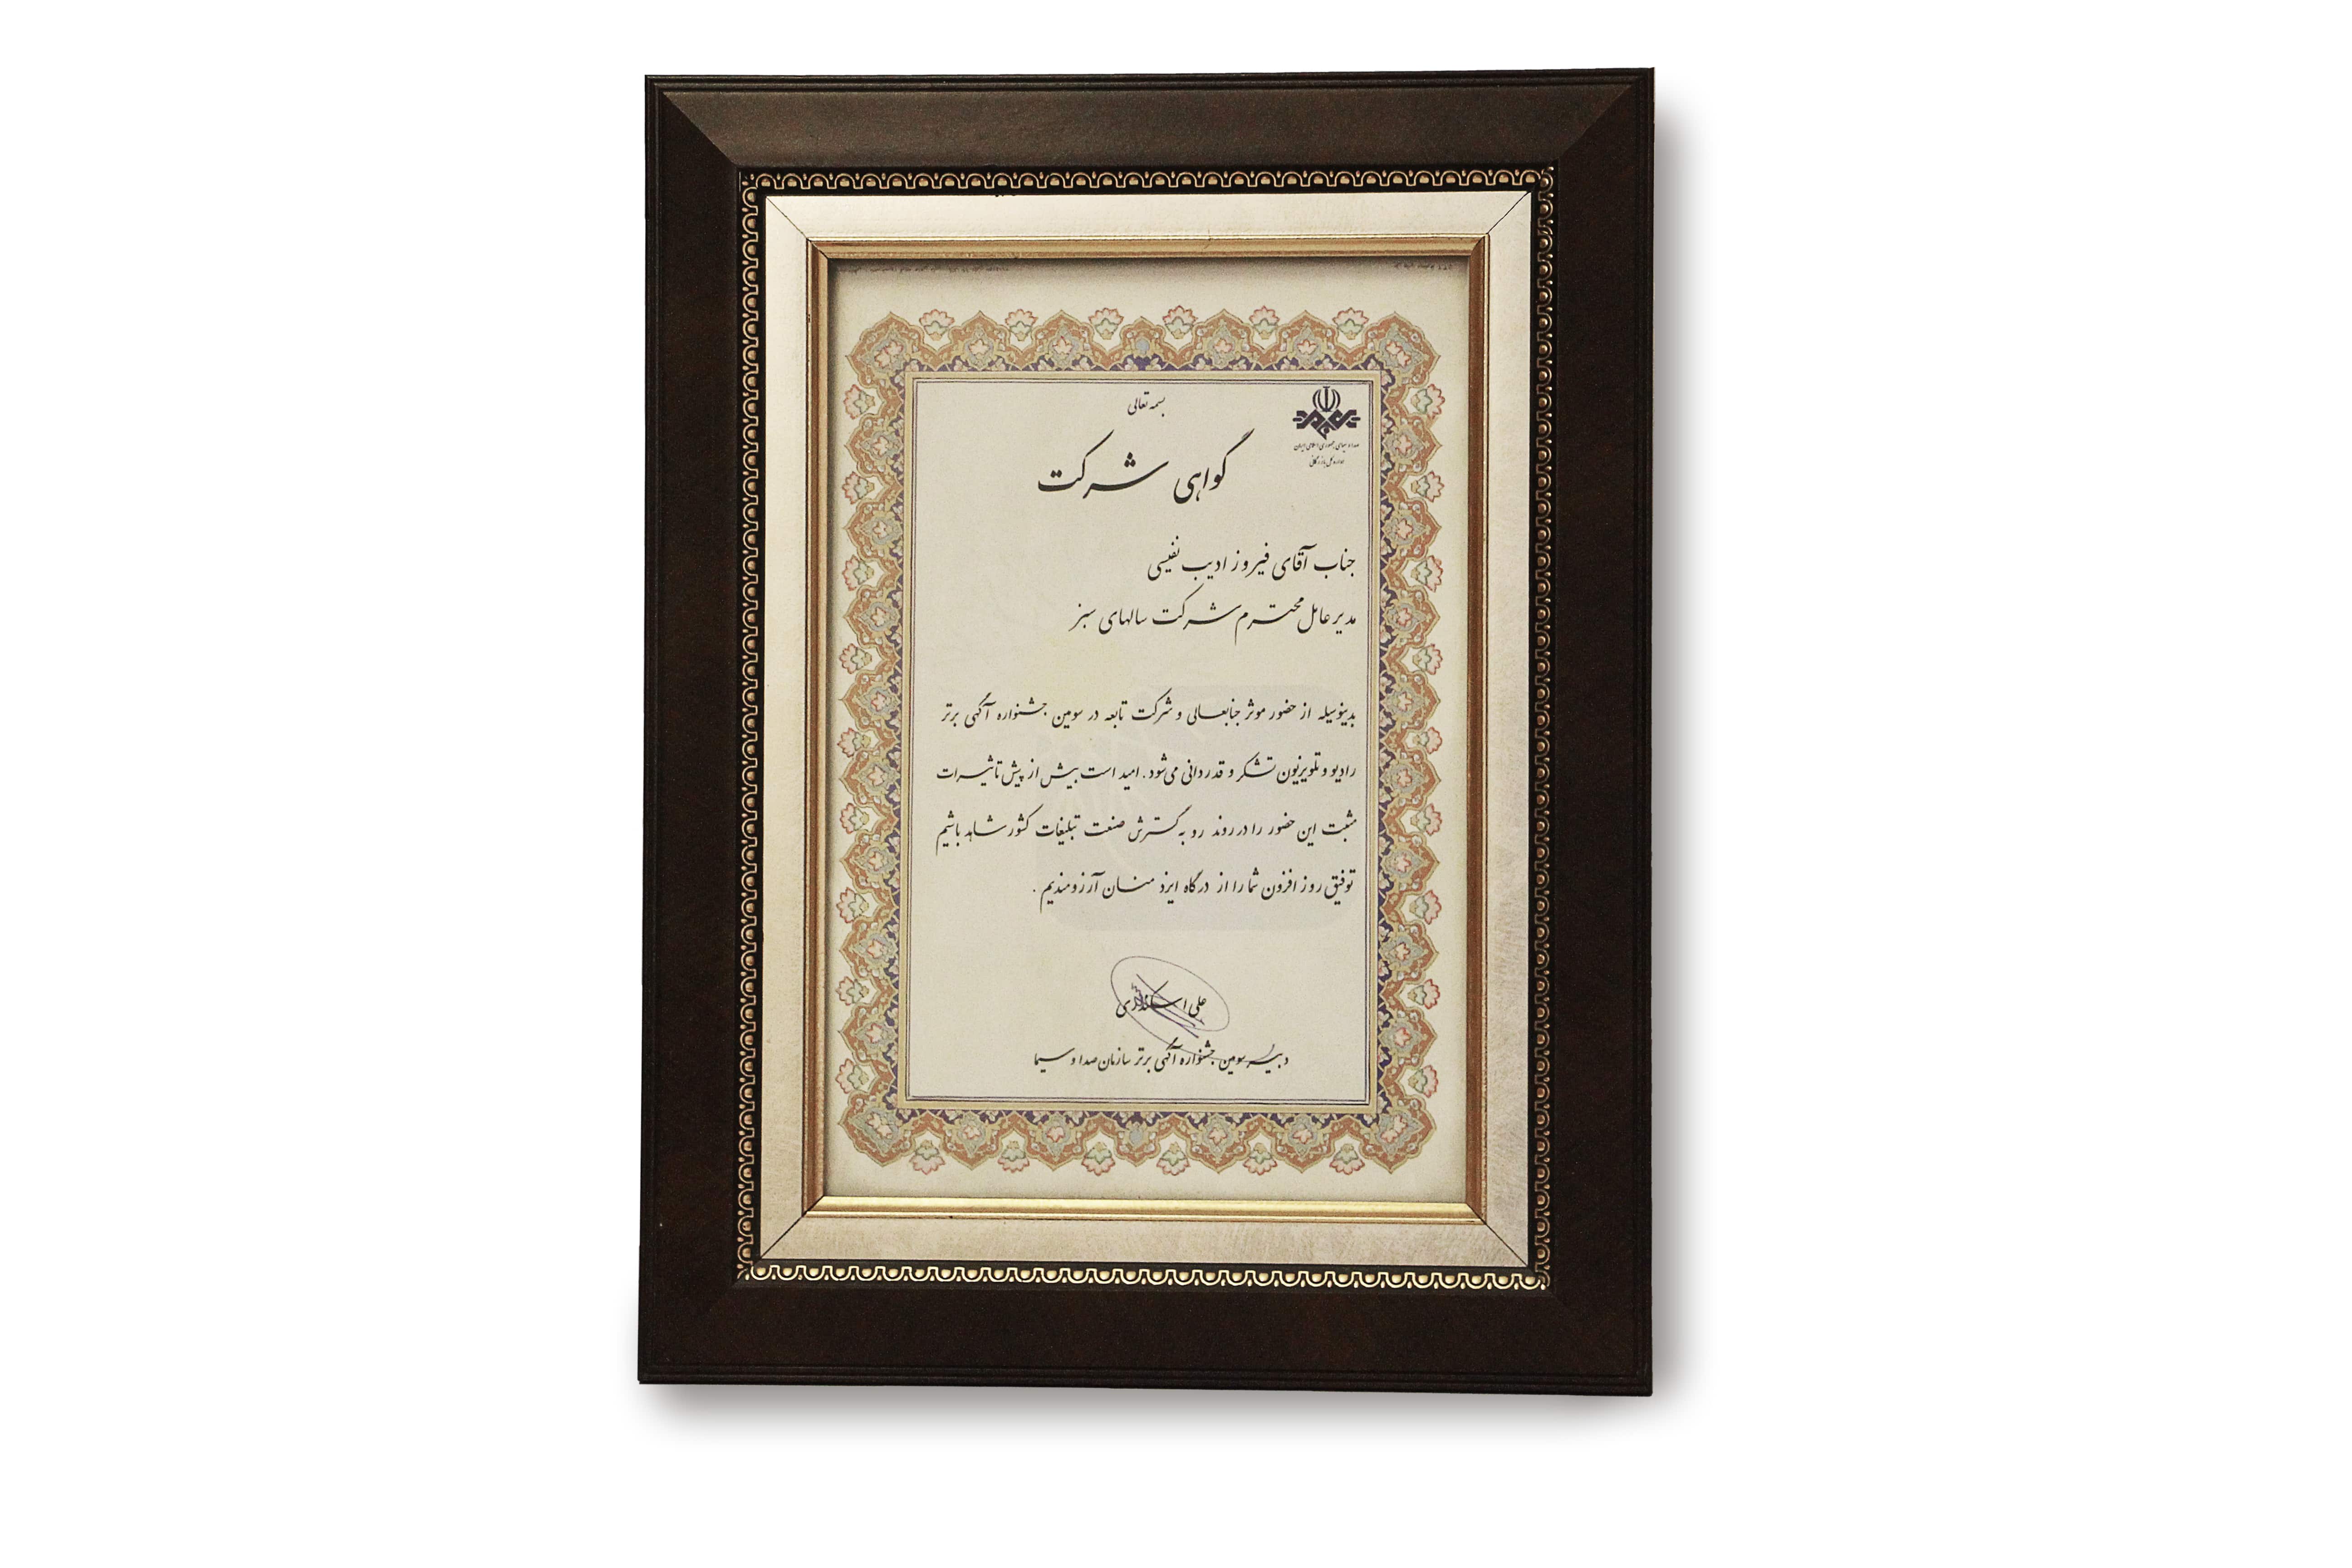 بسمه تعالی
صدا و سیمای جمهوری اسلامی ایران
اداره کل بازرگانی
گواهی شرکت
جناب آقای فیروز ادیب نفیسی
مدیر عامل محترم شرکت سالهای سبز
بدینوسیله از حضور موثر جنابعالی و شرکت تابعه در سومین جشنواره آگهی برتر
رادیو و تلویزیون تشکر و قدردانی می‌شود. امید است بیش از پیش تاثیرات
مثبت این حضور را در روند رو به گسترش صنعت تبلیغات کشور شاهد باشیم
توفیق روز افزون شما را از درگاه ایزد منان آرزومندیم.
علی اسکندری
دبیر سومین جشنواره آگهی برتر سازمان صدا و سیما